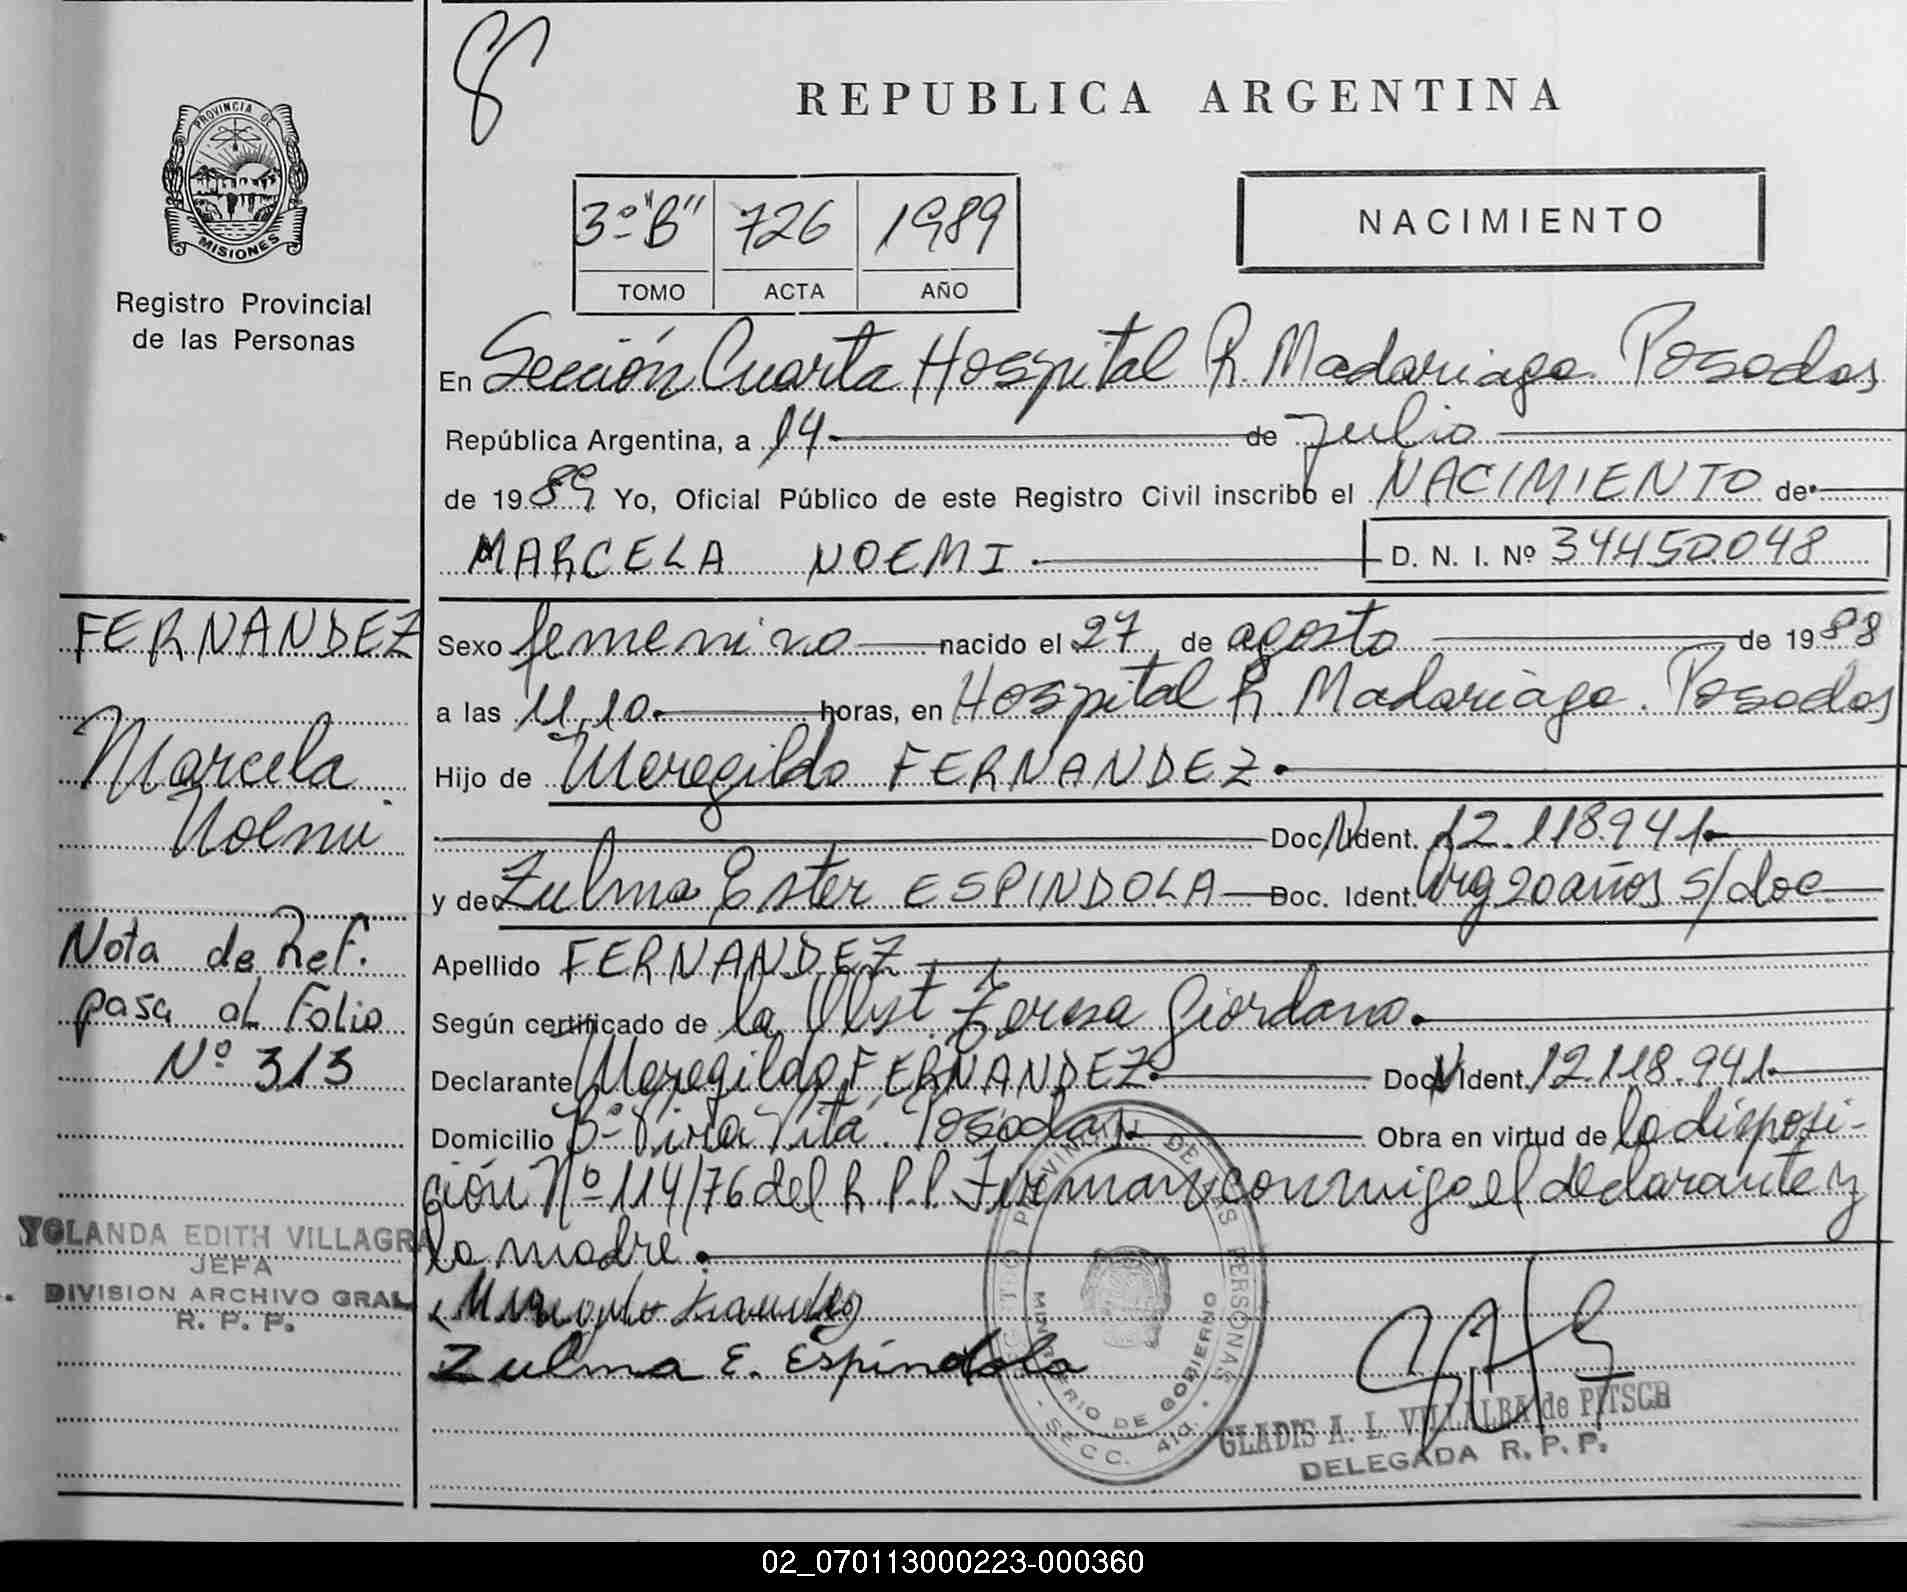 8
REPUBLICA ARGENTINA
PROVINCIA DE
MISIONES
Registro Provincial
de las Personas
3º "B" 726 1989
TOMO ACTA AÑO
NACIMIENTO
En Sección Cuarta Hospital R. Madariaga. Posadas
República Argentina, a 14 de Julio
de 1989 Yo, Oficial Público de este Registro Civil inscribo el NACIMIENTO de
MARCELA NOEMI D. N. I. Nº 34450.048
FERNANDEZ
Marcela
Noemi
Nota de Ref.
pasa al Folio
Nº 313
YOLANDA EDITH VILLAGRA
JEFA
DIVISION ARCHIVO GRAL
R. P. P.
Sexo femenino nacido el 27 de agosto de 1988
a las 11,10 horas, en Hospital R. Madariaga. Posadas
Hijo de Meregildo FERNANDEZ
Doc. N Ident. 12.118.941
y de Zulma Ester ESPINDOLA Doc. Ident. Arg 20 años s/doc
Apellido FERNANDEZ
Según certificado de la Obst. Teresa Giordano.
Declarante Meregildo FERNANDEZ Doc. N Ident. 12.118.941
Domicilio Bº Vita. Posadas Obra en virtud de la disposi-
ción Nº 114/76 del R.P.P. Firman conmigo el declarante y
la madre.
Zulma E. Espíndola
REGISTRO PROVINCIAL DE LAS PERSONAS
MINISTERIO DE GOBIERNO
SECC. 4ta.
GLADIS A. L. VILLALBA de PITSCH
DELEGADA R. P. P.
02_070113000223-000360